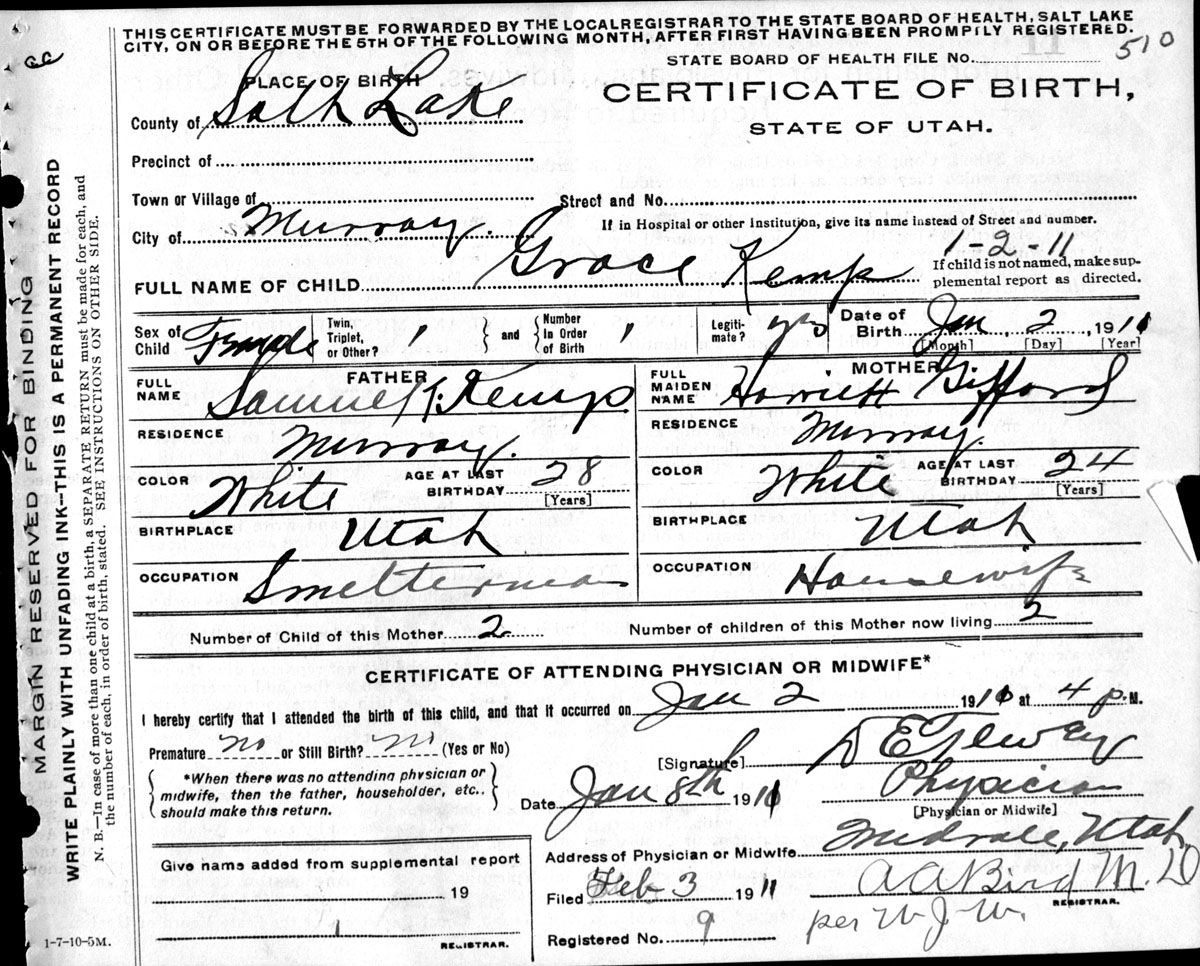 THIS CERTIFICATE MUST BE FORWARDED BY THE LOCAL REGISTRAR TO THE STATE BOARD OF HEALTH, SALT LAKE
CITY, ON OR BEFORE THE 5TH OF THE FOLLOWING MONTH, AFTER FIRST HAVING BEEN PROMPILY REGISTERED.
STATE BOARD OF HEALTH FILE No. 510
PLACE OF BIRTH
CERTIFICATE OF BIRTH,
County of Salt Lake
STATE OF UTAH.
Precinct of
Town or Village of
Street and No.
City of Murray.
If in Hospital or other Institution, give its name instead of Street and number.
1-2-11
FULL NAME OF CHILD Grace Kemp
If child is not named, make sup-
plemental report as directed.
Sex of Child Female
Twin, Triplet, or Other?
and
Number In Order of Birth
Legiti-mate? yes
Date of Birth Jan 2, 1911
[Month] [Day] [Year]
FATHER
FULL NAME Samuel T. Kemp
RESIDENCE Murray.
COLOR White AGE AT LAST BIRTHDAY 28
[Years]
BIRTHPLACE Utah
OCCUPATION Smelterman
MOTHER
FULL MAIDEN NAME Harriett Gifford
RESIDENCE Murray.
COLOR White AGE AT LAST BIRTHDAY 24
[Years]
BIRTHPLACE Utah
OCCUPATION Housewife
Number of Child of this Mother 2
Number of children of this Mother now living 2
CERTIFICATE OF ATTENDING PHYSICIAN OR MIDWIFE*
I hereby certify that I attended the birth of this child, and that it occurred on Jan 2 1911 at 4 p. M.
Premature no or Still Birth? no (Yes or No)
[Signature] D E
*When there was no attending physician or
midwife, then the father, householder, etc..
should make this return.
Date Jan 8th 1911
Physician
[Physician or Midwife]
Address of Physician or Midwife Midvale, Utah.
Give name added from supplemental report
19
REGISTRAR.
Filed Feb 3 1911
A A Bird M. D
REGISTRAR.
Registered No. 9
per W. J. W.
1-7-10-5M.
MARGIN RESERVED FOR BINDING
WRITE PLAINLY WITH UNFADING INK--THIS IS A PERMANENT RECORD
N. B.—In case of more than one child at a birth, a SEPARATE RETURN must be made for each, and
the number of each, in order of birth, stated. SEE INSTRUCTIONS ON OTHER SIDE.